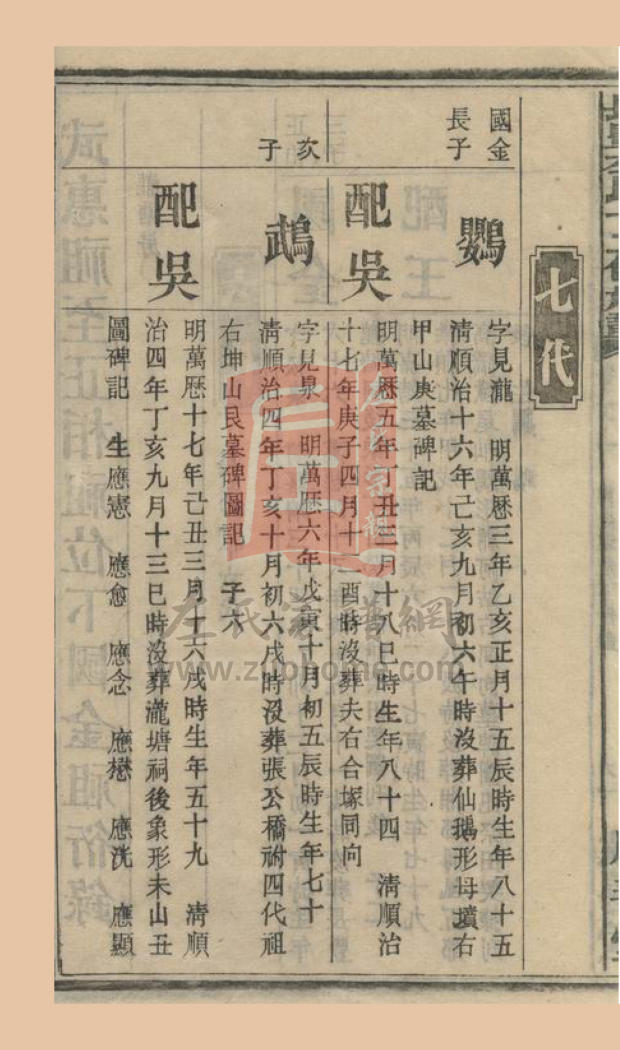 七代
國金長子
鸚
字見瀧 明萬厯三年乙亥正月十五辰時生年八十五
清順治十六年己亥九月初六午時沒葬仙鵝形坶壙右
甲山庚墓碑記
配吳
明萬厯五年丁丑三月十八巳時生年八十四 清順治
十七年庚子四月十二酉時沒葬夫右合塚同向
次子
鵡
字見泉 明萬厯六年戊寅十月初五辰時生年七十
清順治四年丁亥十月初六戌時沒葬張公橋祔四代祖
右坤山艮墓碑圖記 子六
配吳
明萬厯十七年己丑三月十六戌時生年五十九 清順
治四年丁亥九月十三巳時沒葬瀧塘祠後象形未山丑
圖碑記 生應憲 應愈 應念 應懋 應洗 應顯
左氏家譜網
www.zuohome.com